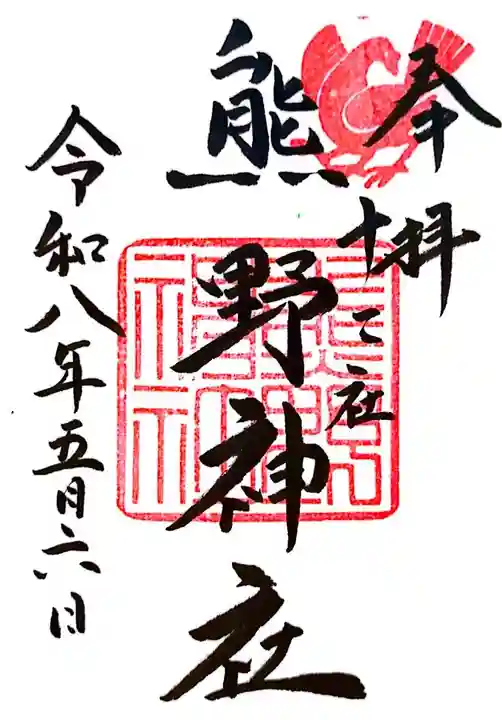 奉拝
十二社
熊野神社
令和八年五月六日